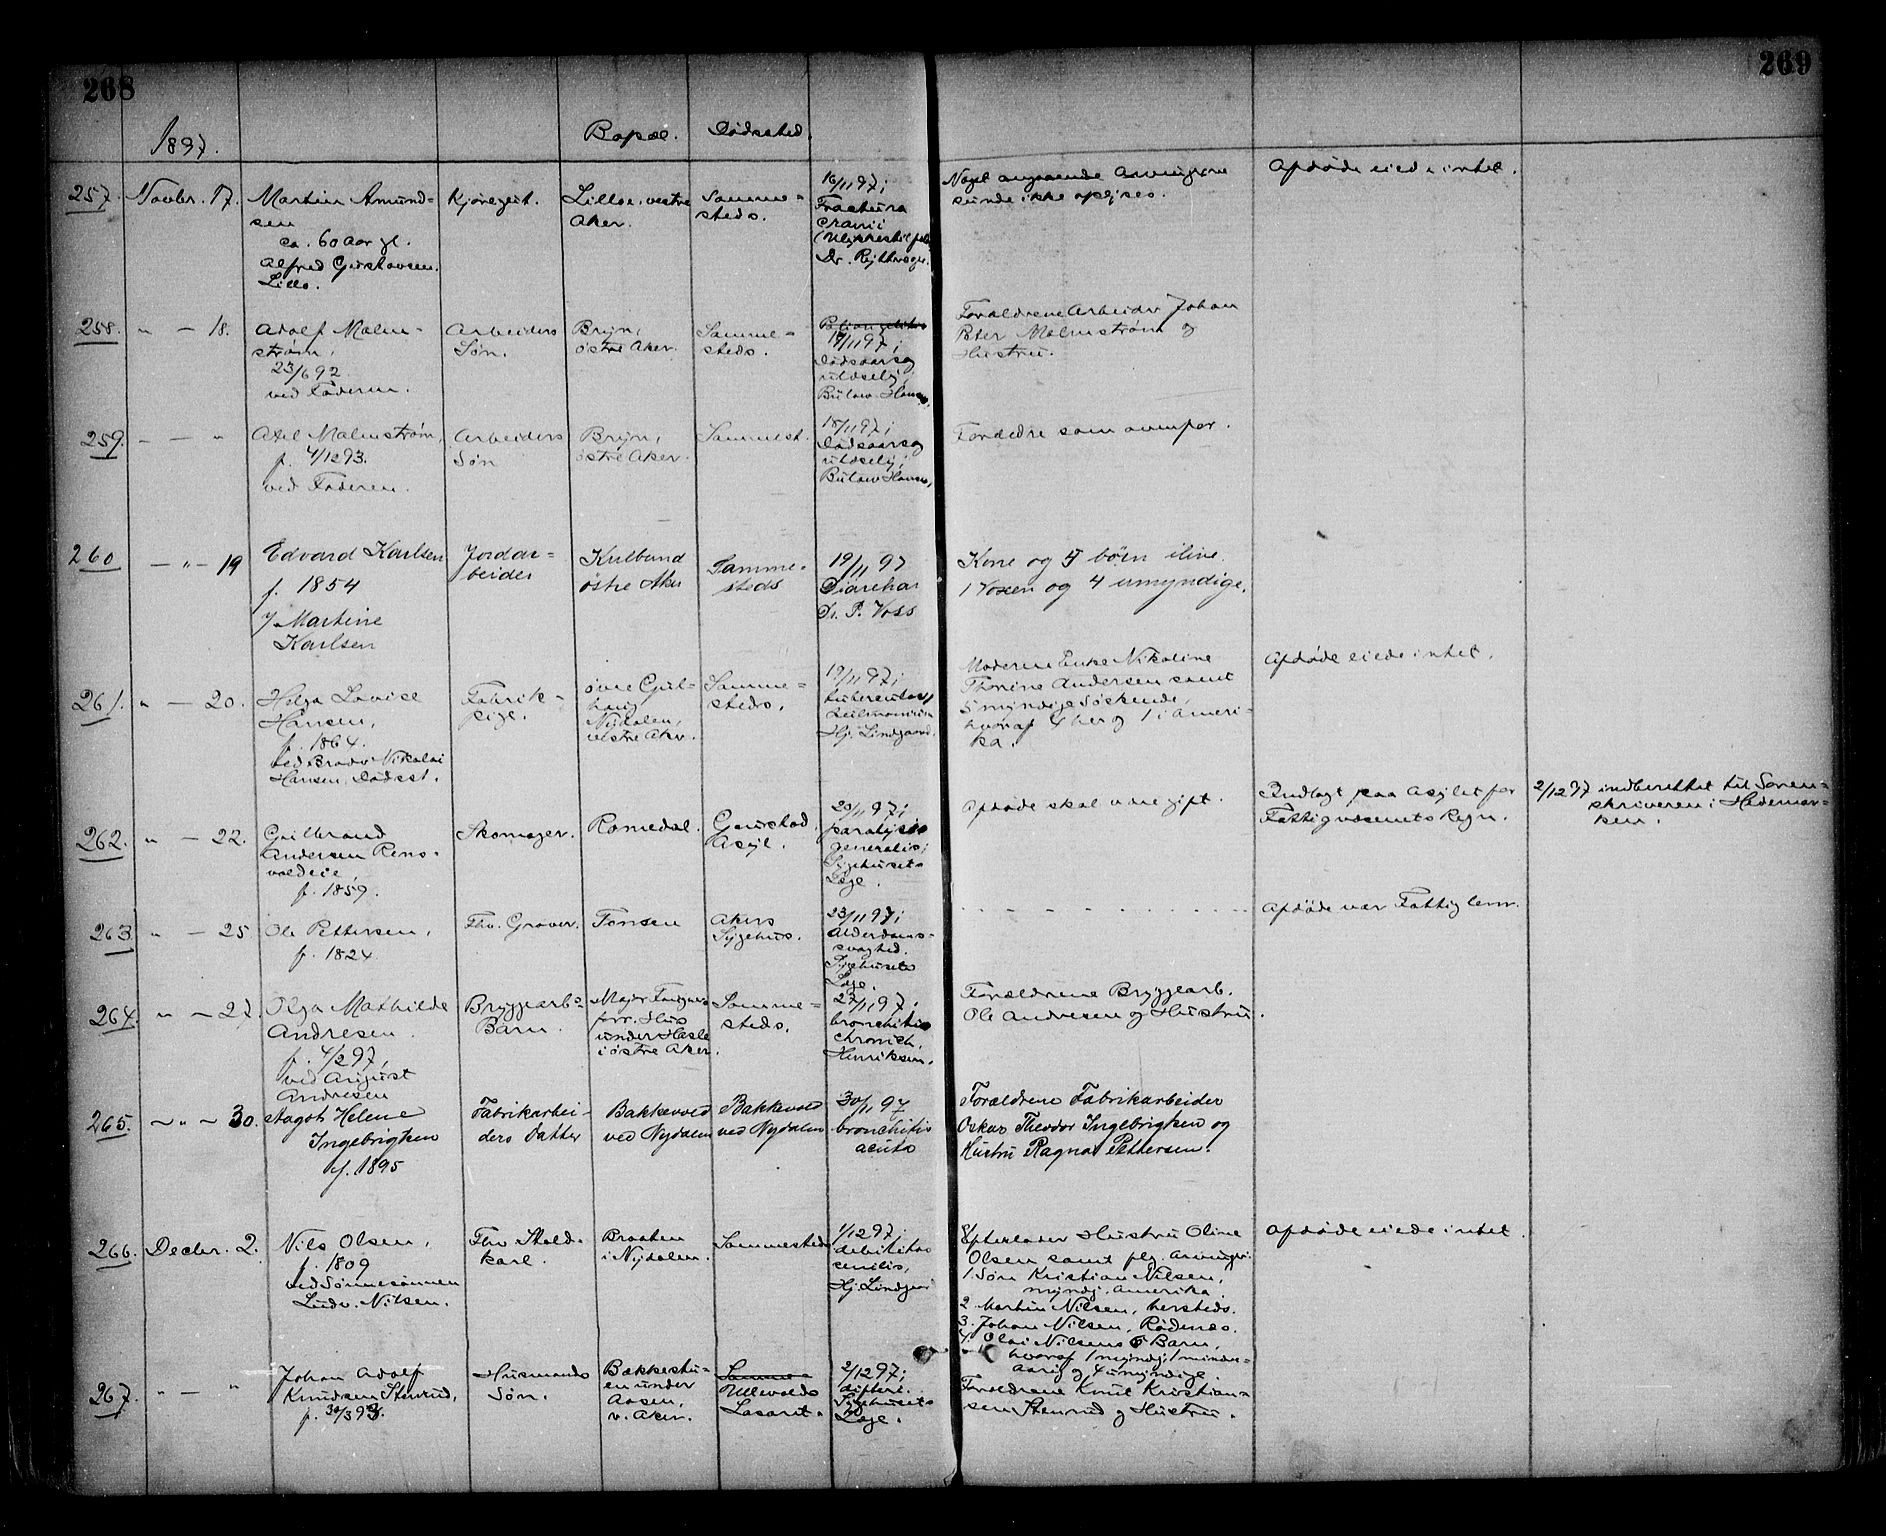 268
269
1897.
Bopæl.
Dødssted.
257.
Novbr. 17.
Martin Amund-
sen
ca. 60 Aar gl.
Alfred Gustavsen.
Lillo.
Kjøregut.
Lilloe, vestre
Aker.
Samme-
steds.
16/11 97;
Fractura
cranii
Dr.
Noget angaaende Arvingerne
kunde ikke oplyses.
Afdøde eiede intet.
258.
" — 18.
Adolf Malm-
strøm,
23/6 92
ved Faderen.
Arbeiders
Søn.
Bryn,
østre Aker.
Samme-
steds.
/11 97;
Dødsaarsag
utdselig,
Bülow-Hansen,
Forældrene Arbeider Johan
Peter Malmstrøm og
Hustru.
259.
— — "
Axel Malmstrøm,
f. 4/12 93.
ved Faderen.
Arbeiders
Søn
Bryn,
østre Aker.
Sammest.
18/11 97;
Dødsaarsag
utdselig;
Bülow-Hansen,
Forældre som ovenfor.
260
— " — 19
Edvard Karlsen
f. 1854
v/ Martine
Karlsen
Jordar-
beider
Kulbund
østre Aker
Samme-
steds
19/11 97
Diarehar
Dr. P. Voss
Kone og 5 børn ilive
1 Voxen og 4 umyndige.
261.
" — 20.
Helga Lovise
Hansen,
f. 1864.
ved Broder Nikolai
Hansen, Dødsst.
Fabrik-
pige.
øvre Gul-
haug
Nydalen,
vestre Aker.
Samme-
steds.
19/11 97;
tuberculos
pulmonum
Hj. Lindgaard.
Moderen Enke Nikoline
Thorine Andersen samt
5 myndige Søskende,
hvoraf 4 her og 1 i Ameri-
ka.
Afdøde eiede intet.
262.
" — 22.
Gulbrand
Andersen Rens-
voldeie,
f. 1859.
Skomager.
Romedal.
Gaustad
Asyl.
20/11 97;
paralysis
generalis;
Sygehusets
Læge.
Afdøde skal være gift.
Indlagt paa Asylet for
Fattigvæsenets Regn.
2/12 97 indberettet til Soren-
skriveren i Hedemar-
ken.
263
" — 25.
Ole Pettersen,
f. 1824
Fhv. Graver.
Tonsen
Akers
Sygehus.
23/11 97;
Alderdoms-
svaghed.
Sygehusets
Læge.
Afdøde var Fattiglem.
264.
" — 27.
Olga Mathilde
Andresen.
f. 4/2 97,
ved August
Andresen
Bryggearb.
Barn.
Major
Hus
under Hasle
i østre Aker.
Samme-
steds.
27/11 97;
bronchitis
chronich,
Henriksen.
Forældrene Bryggearb.
Ole Andresen og Hustru.
265.
— " — 30.
Aagot Helene
Ingebrigtsen
f. 1895
Fabrikarbei-
ders Datter
Bakkevold
ved Nydalen
Bakkevold
ved Nydalen
30/11 97
bronchitis
acuta
Forældrene Fabrikarbeider
Oskar Theodor Ingebrigtsen og
Hustru Ragna Pettersen.
266.
Decbr. 2.
Nils Olsen,
f. 1809
ved Sønnesønnen
Ludv. Nilsen.
Fhv. Stald-
karl.
Braaten
i Nydalen.
Sammesteds
1/12 97;
debilitas
senilis,
Hj. Lindgaard
Efterlader Hustru Oline
Olsen samt flg. Arvinger:
1. Søn Kristian Nilsen,
myndg. Amerika.
2. Martin Nilsen, hersteds.
3. Johan Nilsen, Rødenæs.
4. Olai Nilsens 6 Barn,
hvoraf 1 myndg, 1 minder-
aarig og 4 umyndige.
Afdøde eiede intet.
267.
" — "
Johan Adolf
Knudsen Stenrud,
f. 30/3 93.
Husmands
Søn.
Bakkestu-
en under
Aasen,
v. Aker.
Samme-
Ullevolds
Lasaret.
2/12 97;
difteri.
Sygehusets
Læge.
Forældrene Knut Kristian-
sen Stenrud og Hustru.